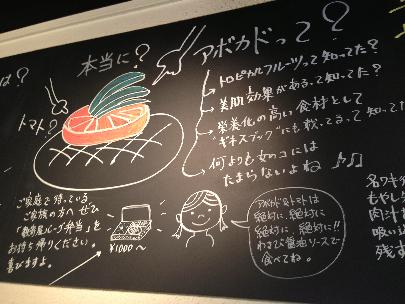 は?
本当に?
アボカドって?
トマト?
トロピカルフルーツって知ってた?
美肌効果があるって知ってた?
栄養化の高い食材として
"ギネスブック"にも載ってるって知ってた
何よりも女のコには
たまらないよね
ご家庭で待っている
ご家族の方へぜひ
お持ち帰りください。
喜びますよ。
¥1000〜
アボカド&トマトは
絶対に、絶対に
絶対に、絶対に!!
わさび醤油ソースで
食べてね。
もやし
肉汁
吸い
残す